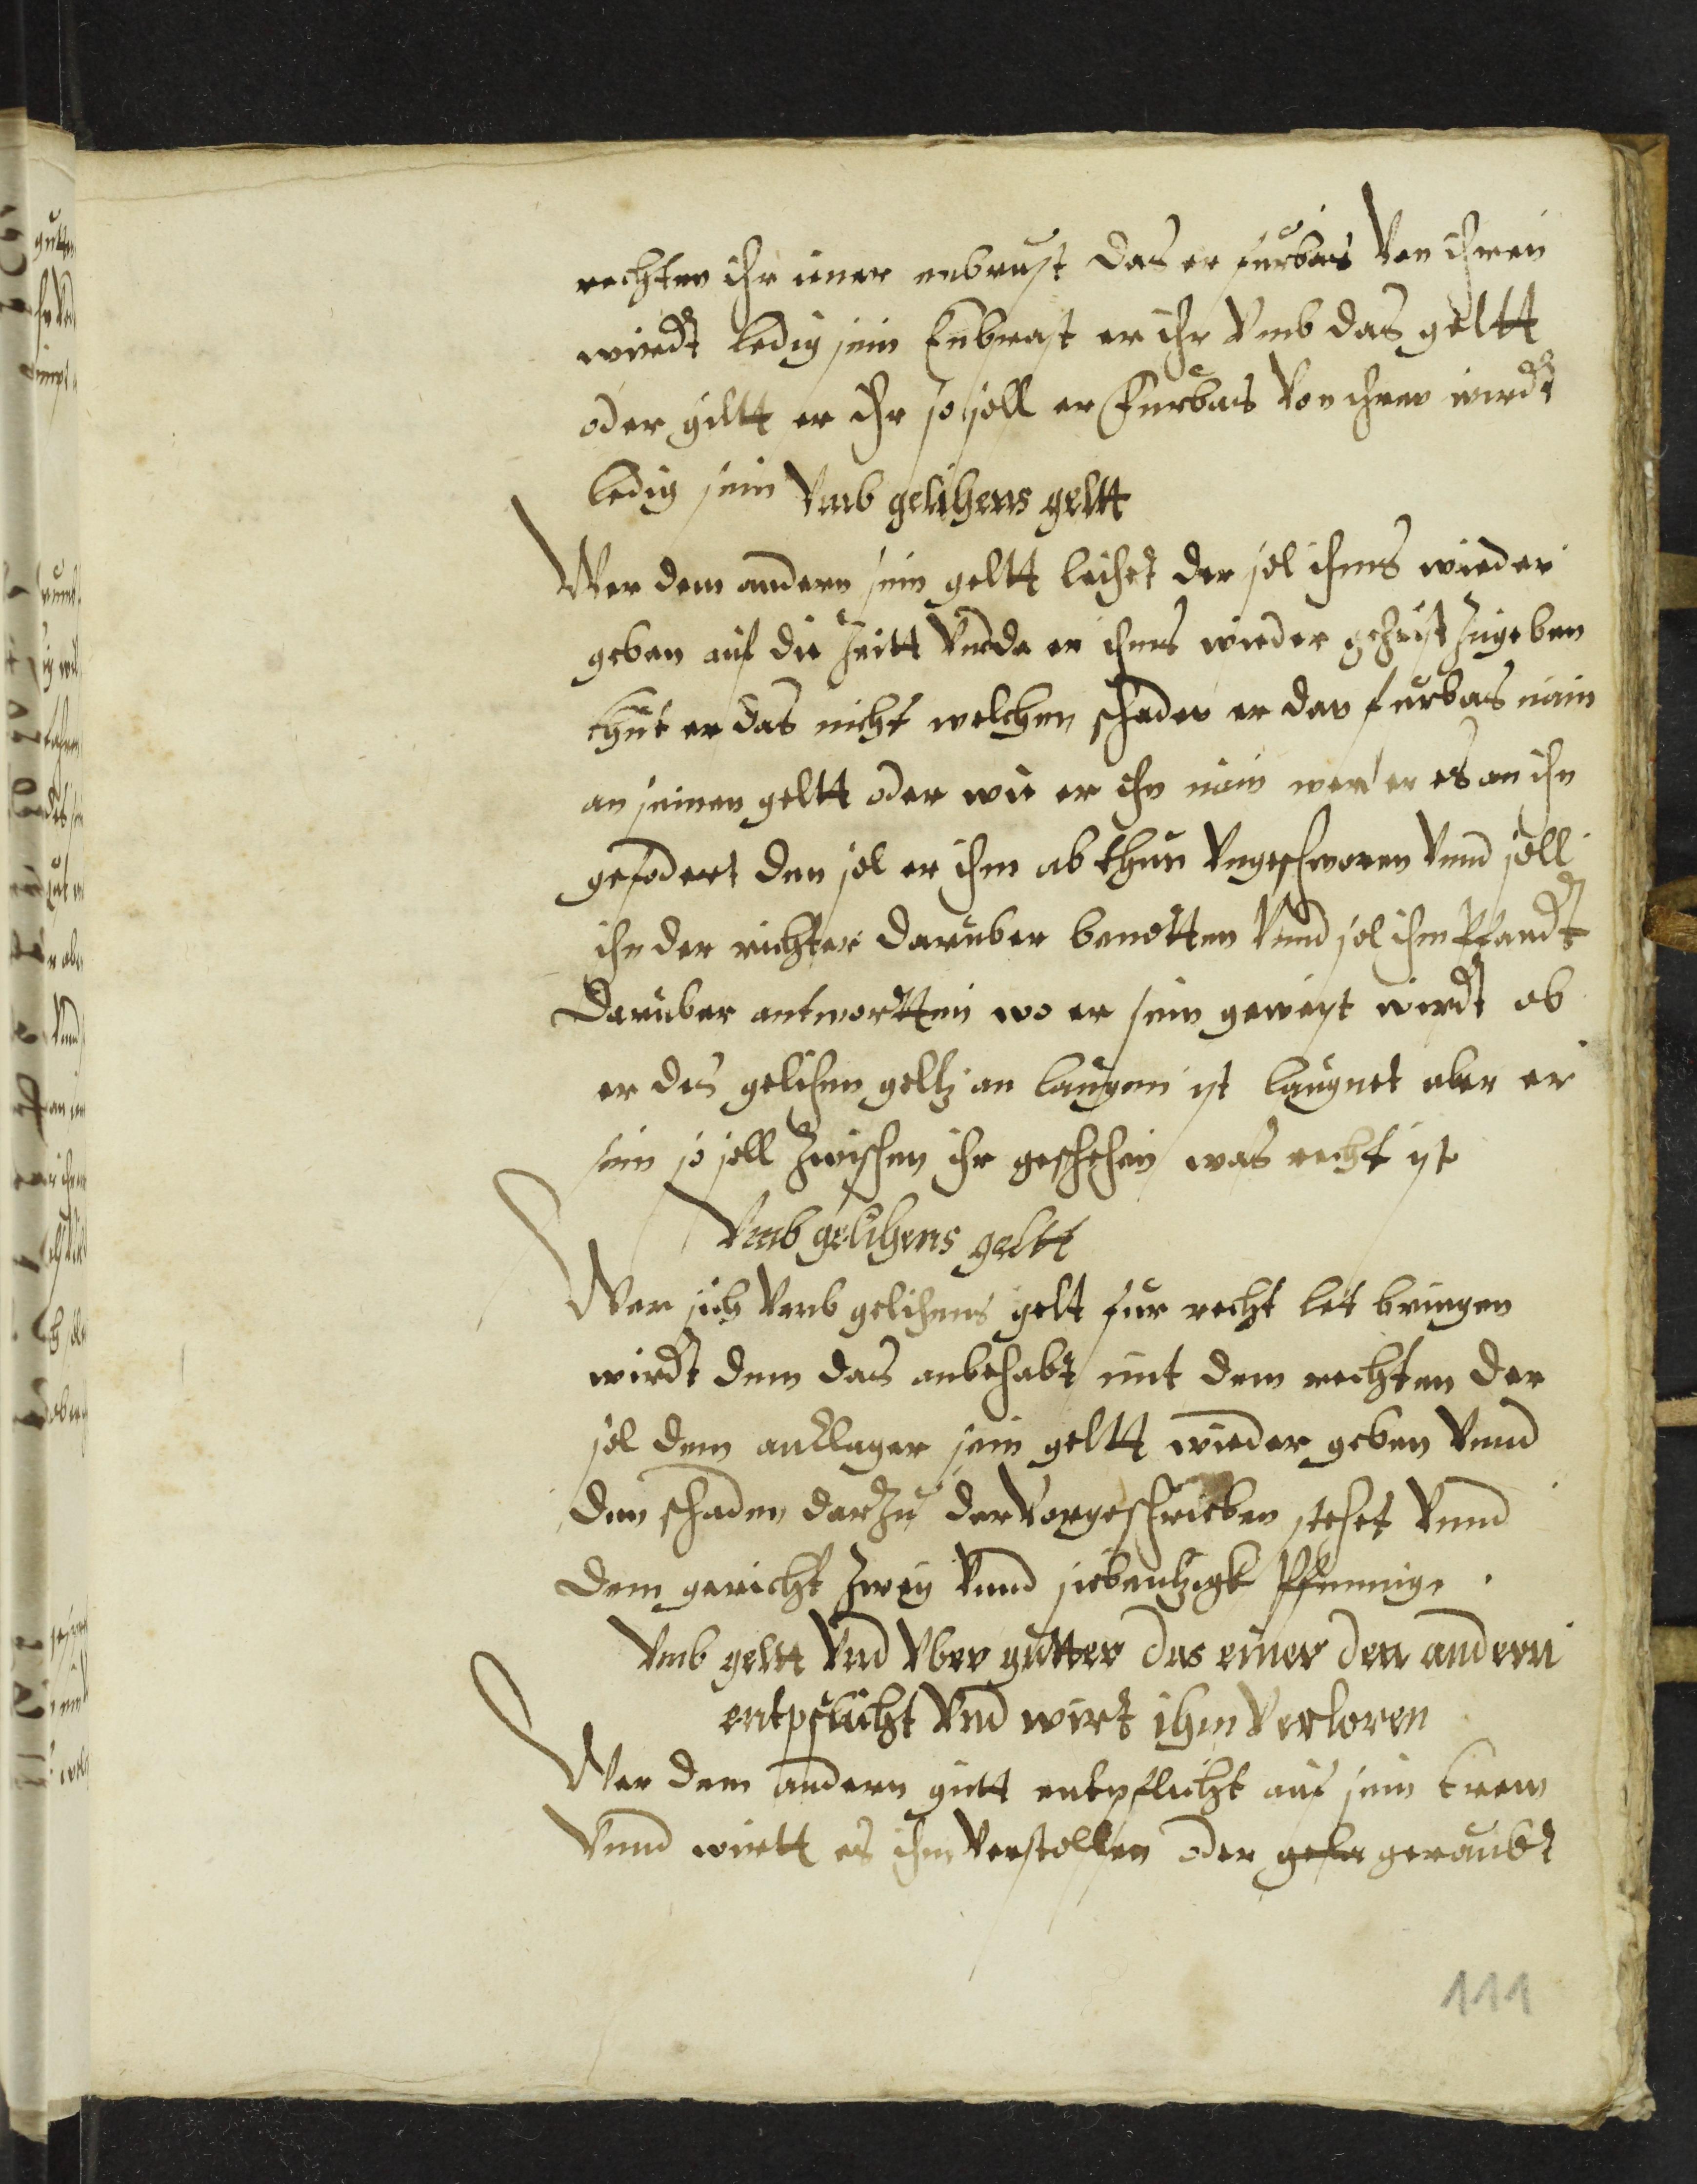 rechten ihr iener enbrust das er furbas Von ihren
wiedt ledig sein Enbrast er ihr Vmb das geltt
oder giltt er ihr so soll er furbas Von ihrer wirdt
ledig sein Vmb gelihens geltt
Wer dem andern sein geltt leihet der sol ihms wieder
geben auf die Zeitt Vnd da er ihms wieder gehiest Zugeben
thut er das nicht welchen schaden er dan furbas nain
an seinen geltt oder wie er ihn nain wen er es an ihn
gefodert den sol er ihm ab thun Vngeschworen Vnnd soll
ihn der richter daruber benotten Vnnd sol ihm Pfandt
daruber antwortten wo er sein geweist wirdt ob
er des gelihen geltz an laugen ist laugnet aber er
sein so soll Zwischen ihr geschehen was recht ist
Vmb gelihens geltt
Wer sich Vmb gelihens gelt fur recht let bringen
wirdt dem das anbehabt mit dem rechten der
sol dem anklager sein geltt wieder geben Vnnd
den schaden darzu der Vorgeschrieben stehet Vnnd
dem gericht Zwey Vnnd siebentzigk Pfennige.
Vmb geltt Vnd Vber gutter das einer den andern
entpflicht Vnd wirt ihm Verloren
Wer dem andern gutt entpflicht auf sein trew
Vnnd wirtt es ihm Verstollen oder geraubt
111